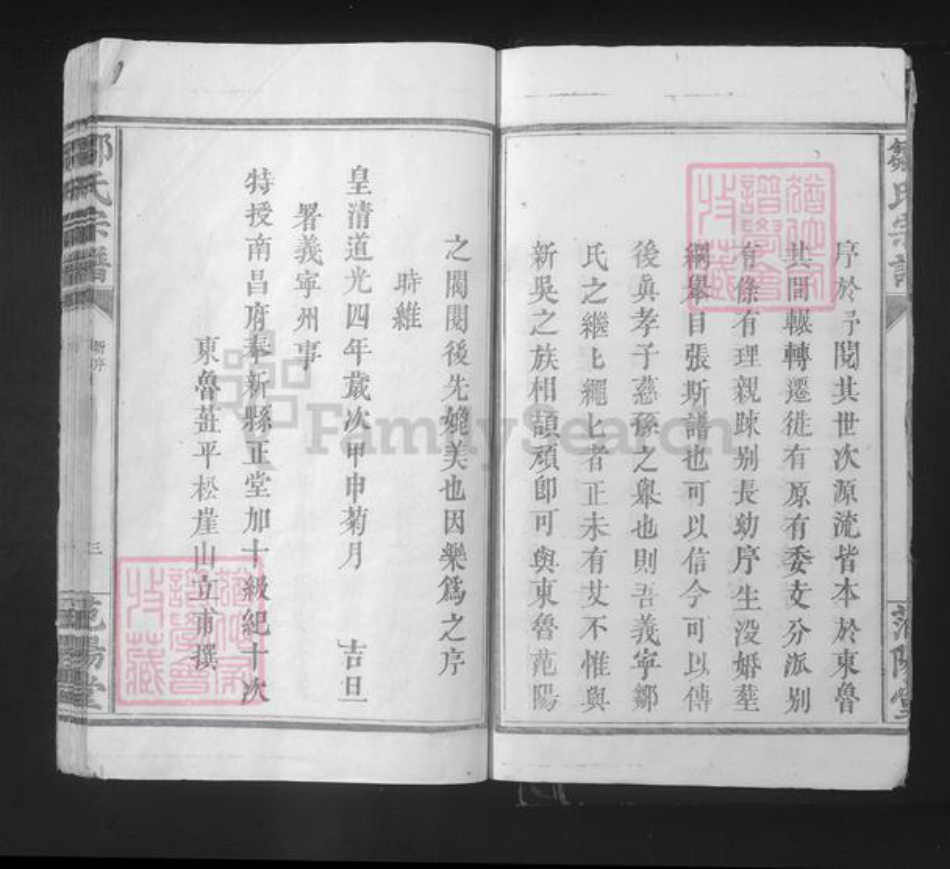 鄒氏宗譜
范陽堂
序於予閱其世次源流皆本於東魯
其間輾轉遷徙有原有委支分派別
有條有理親疎别長幼序生没婚塟
綱舉目張斯譜也可以信今可以傳
後眞孝子慈孫之舉也則吾義寧鄒
氏之繼匕繩匕者正未有艾不惟與
新吳之族相頡頏卽可與東魯范陽
之閥閱後先媲美也因樂爲之序
時維
皇清道光四年歲次甲申菊月 吉旦
署義寧州事
特授南昌府奉新縣正堂加十級紀十次
東魯茌平松崖山立甫撰
鄒氏宗譜
新序
三
范陽堂
FamilySearch